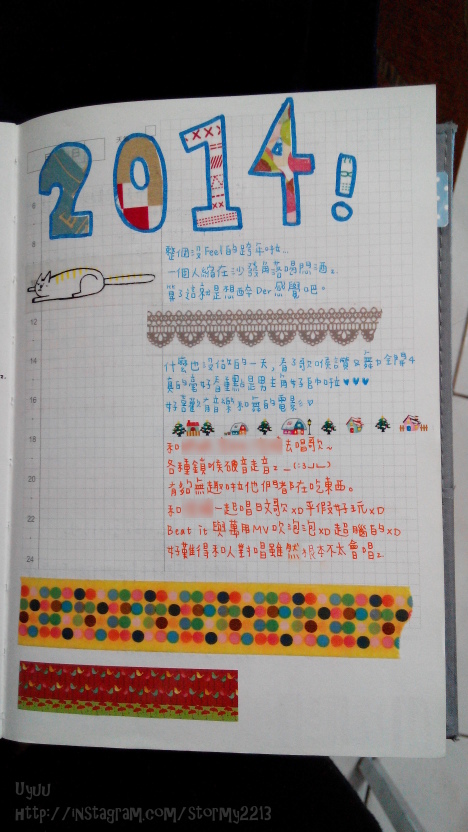 2014!
整個沒Feel的跨年啦...
一個人縮在沙發角落喝悶酒。
算了這就是想醉Der感覺吧。
什麼也沒做的一天,看了歌喉讚又舞力全開4
真的蠻好看重點是男主角好帥啦♥♥♥
好喜歡有音樂和舞的電影。♡
和 去唱歌~
各種鎖喉破音走音。_(:3」∠)_
有夠無趣啦他們都在吃東西。
和 一起唱日文歌XD平假好玩XD
Beat it與萬用MV吹泡泡XD超腦的XD
好難得和人對唱雖然根本不太會唱。
6
8
10
12
14
16
18
20
22
24
UyUU
Http://instagram.com/stormy2213